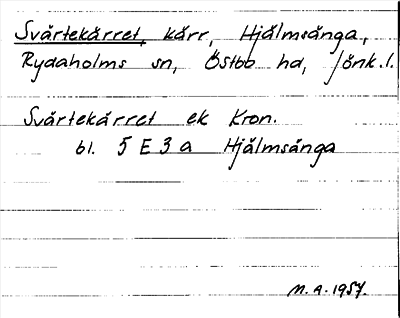 Svärtekärret, kärr, Hjälmsänga,
Rydaholms sn, Östbo hd, Jönk.l.
Svärtekärret ek Kron.
bl. 5 E 3 a Hjälmsänga
M.A. 1957.